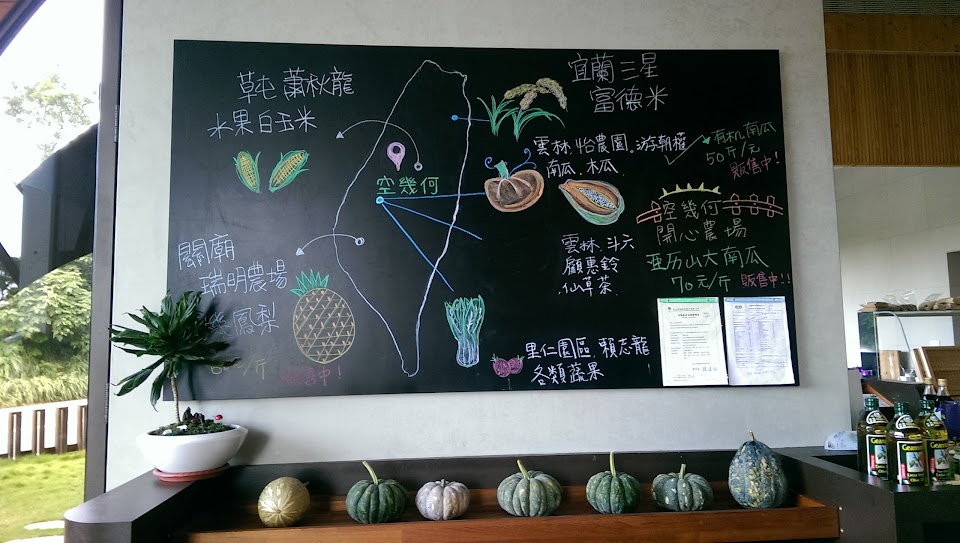 草屯 蕭秋龍
水果白玉米
空幾何
關廟
瑞明農場
鳳梨
/斤 販售中!
宜蘭三星
富德米
雲林.怡農園.游朝權
南瓜.木瓜
有机南瓜
50斤/元
販售中!
空幾何
開心農場
亚历山大南瓜
70元/斤 販售中!!
雲林.斗六
顧惠鈴
仙草茶
里仁園區.賴志龍
各類蔬果